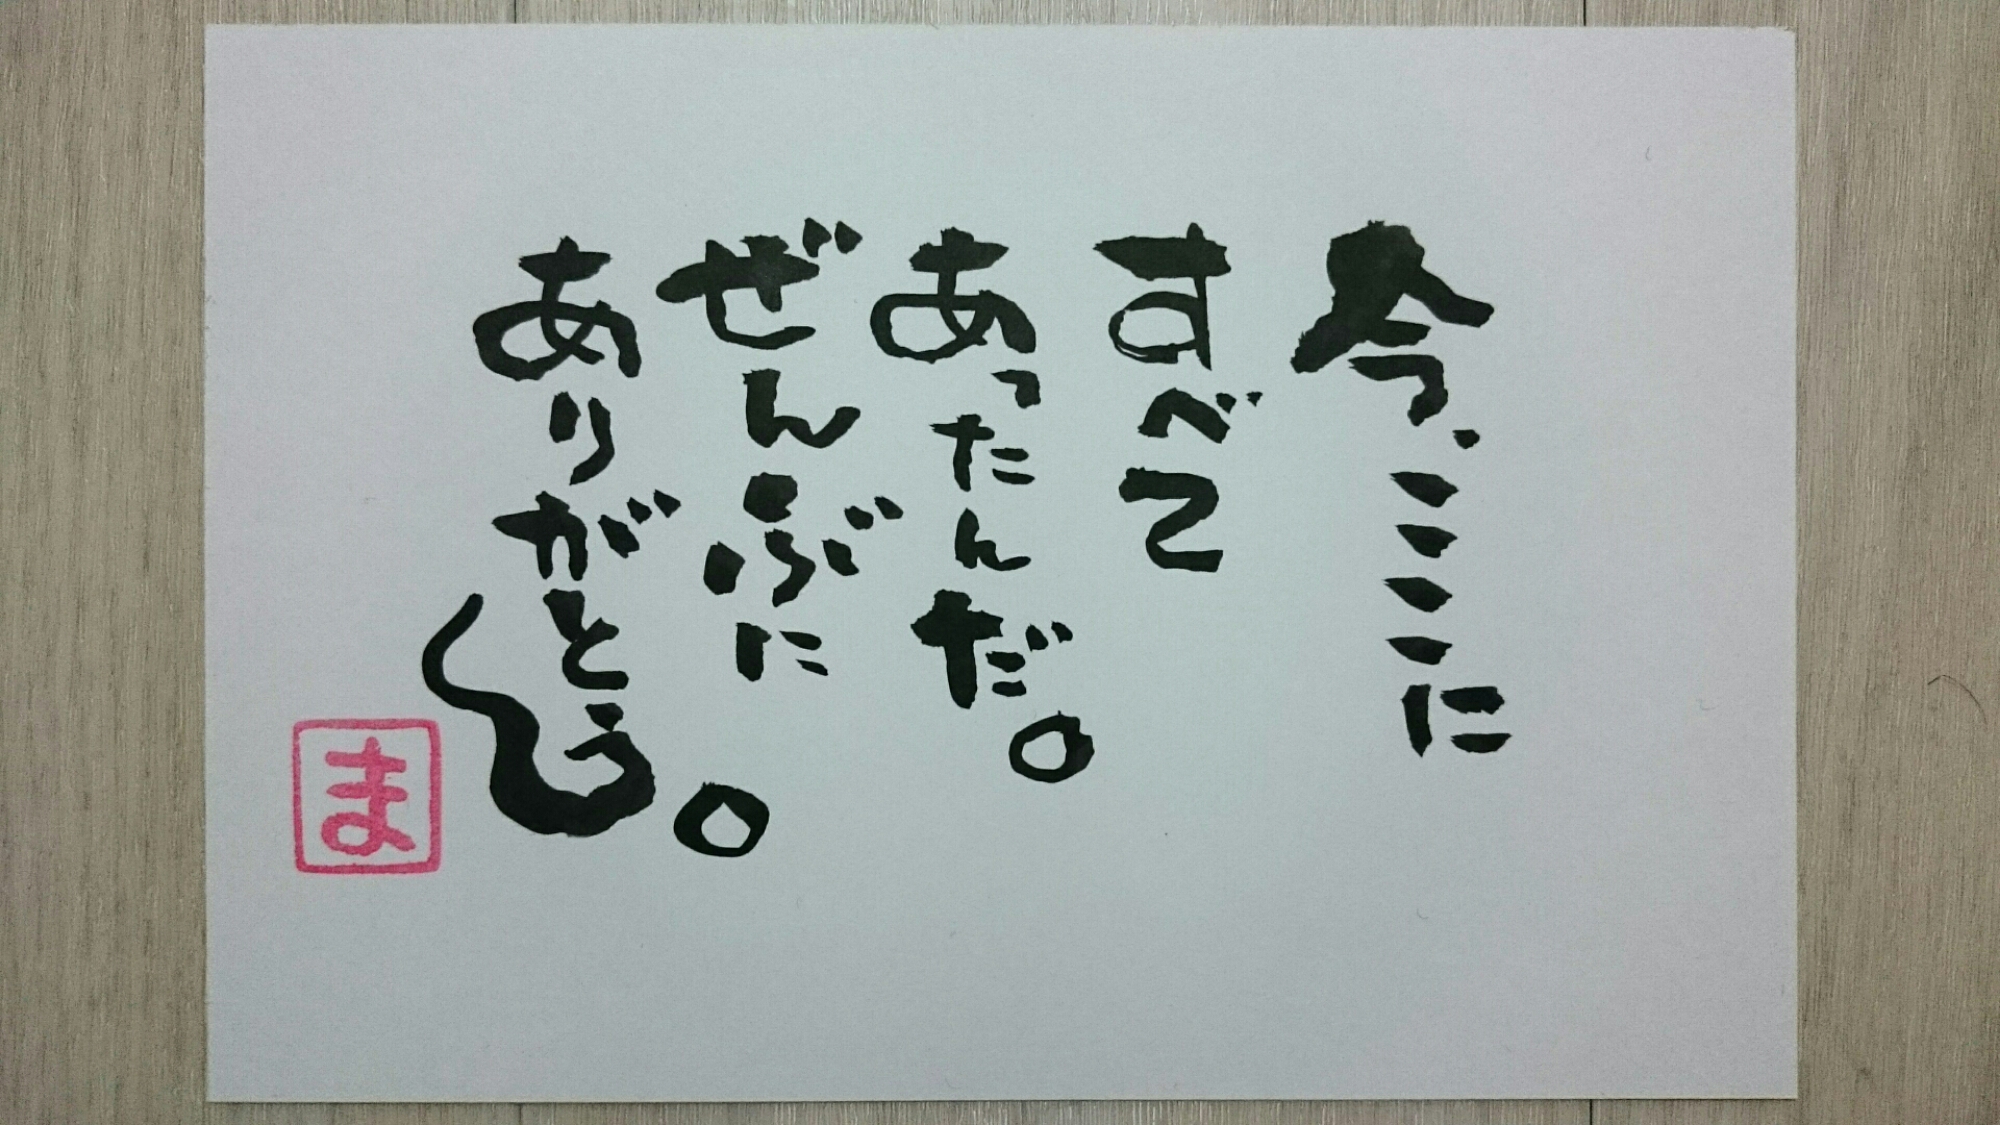 今、ここに
すべて
あったんだ。
ぜんぶに
ありがとう。
ま